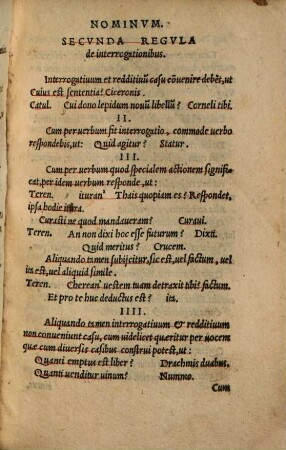 NOMINVM.
SECVNDA REGVLA
de interrogationibus.
Interrogatiuum et redditiuũ casu cõuenire debẽt, ut
Cuius est sententia? Ciceronis.
Catul. Cui dono lepidum nouũ libellũ? Corneli tibi.
II.
Cum per uerbum fit interrogatio, commode uerbo
respondebis, ut: Quid agitur? Statur.
III.
Cum per uerbum quod specialem actionem signifi
cat, per idem uerbum responde, ut:
Teren. ituran' Thais quopiam es? Respondet,
ipsa hodie
Curasti ne quod mandaueram? Curaui.
Teren. An non dixi hoc esse futurum? Dixti.
Quid meritus? Crucem.
Aliquando tamen subijcitur, sic est, uel factum, uel
ita est, uel aliquid simile.
Teren. Cherean' uestem tuam detraxit tibi? factum.
Et pro te huc deductus est? ita.
IIII.
Aliquando tamen interrogatiuum & redditiuum
non conueniunt casu, cum uidelicet quæritur per uocem
quæ cum diuersis casibus construi potest, ut:
Quanti emptus est liber? Drachmis duabus.
Quanti uenditur uinum? Nummo.
Cum